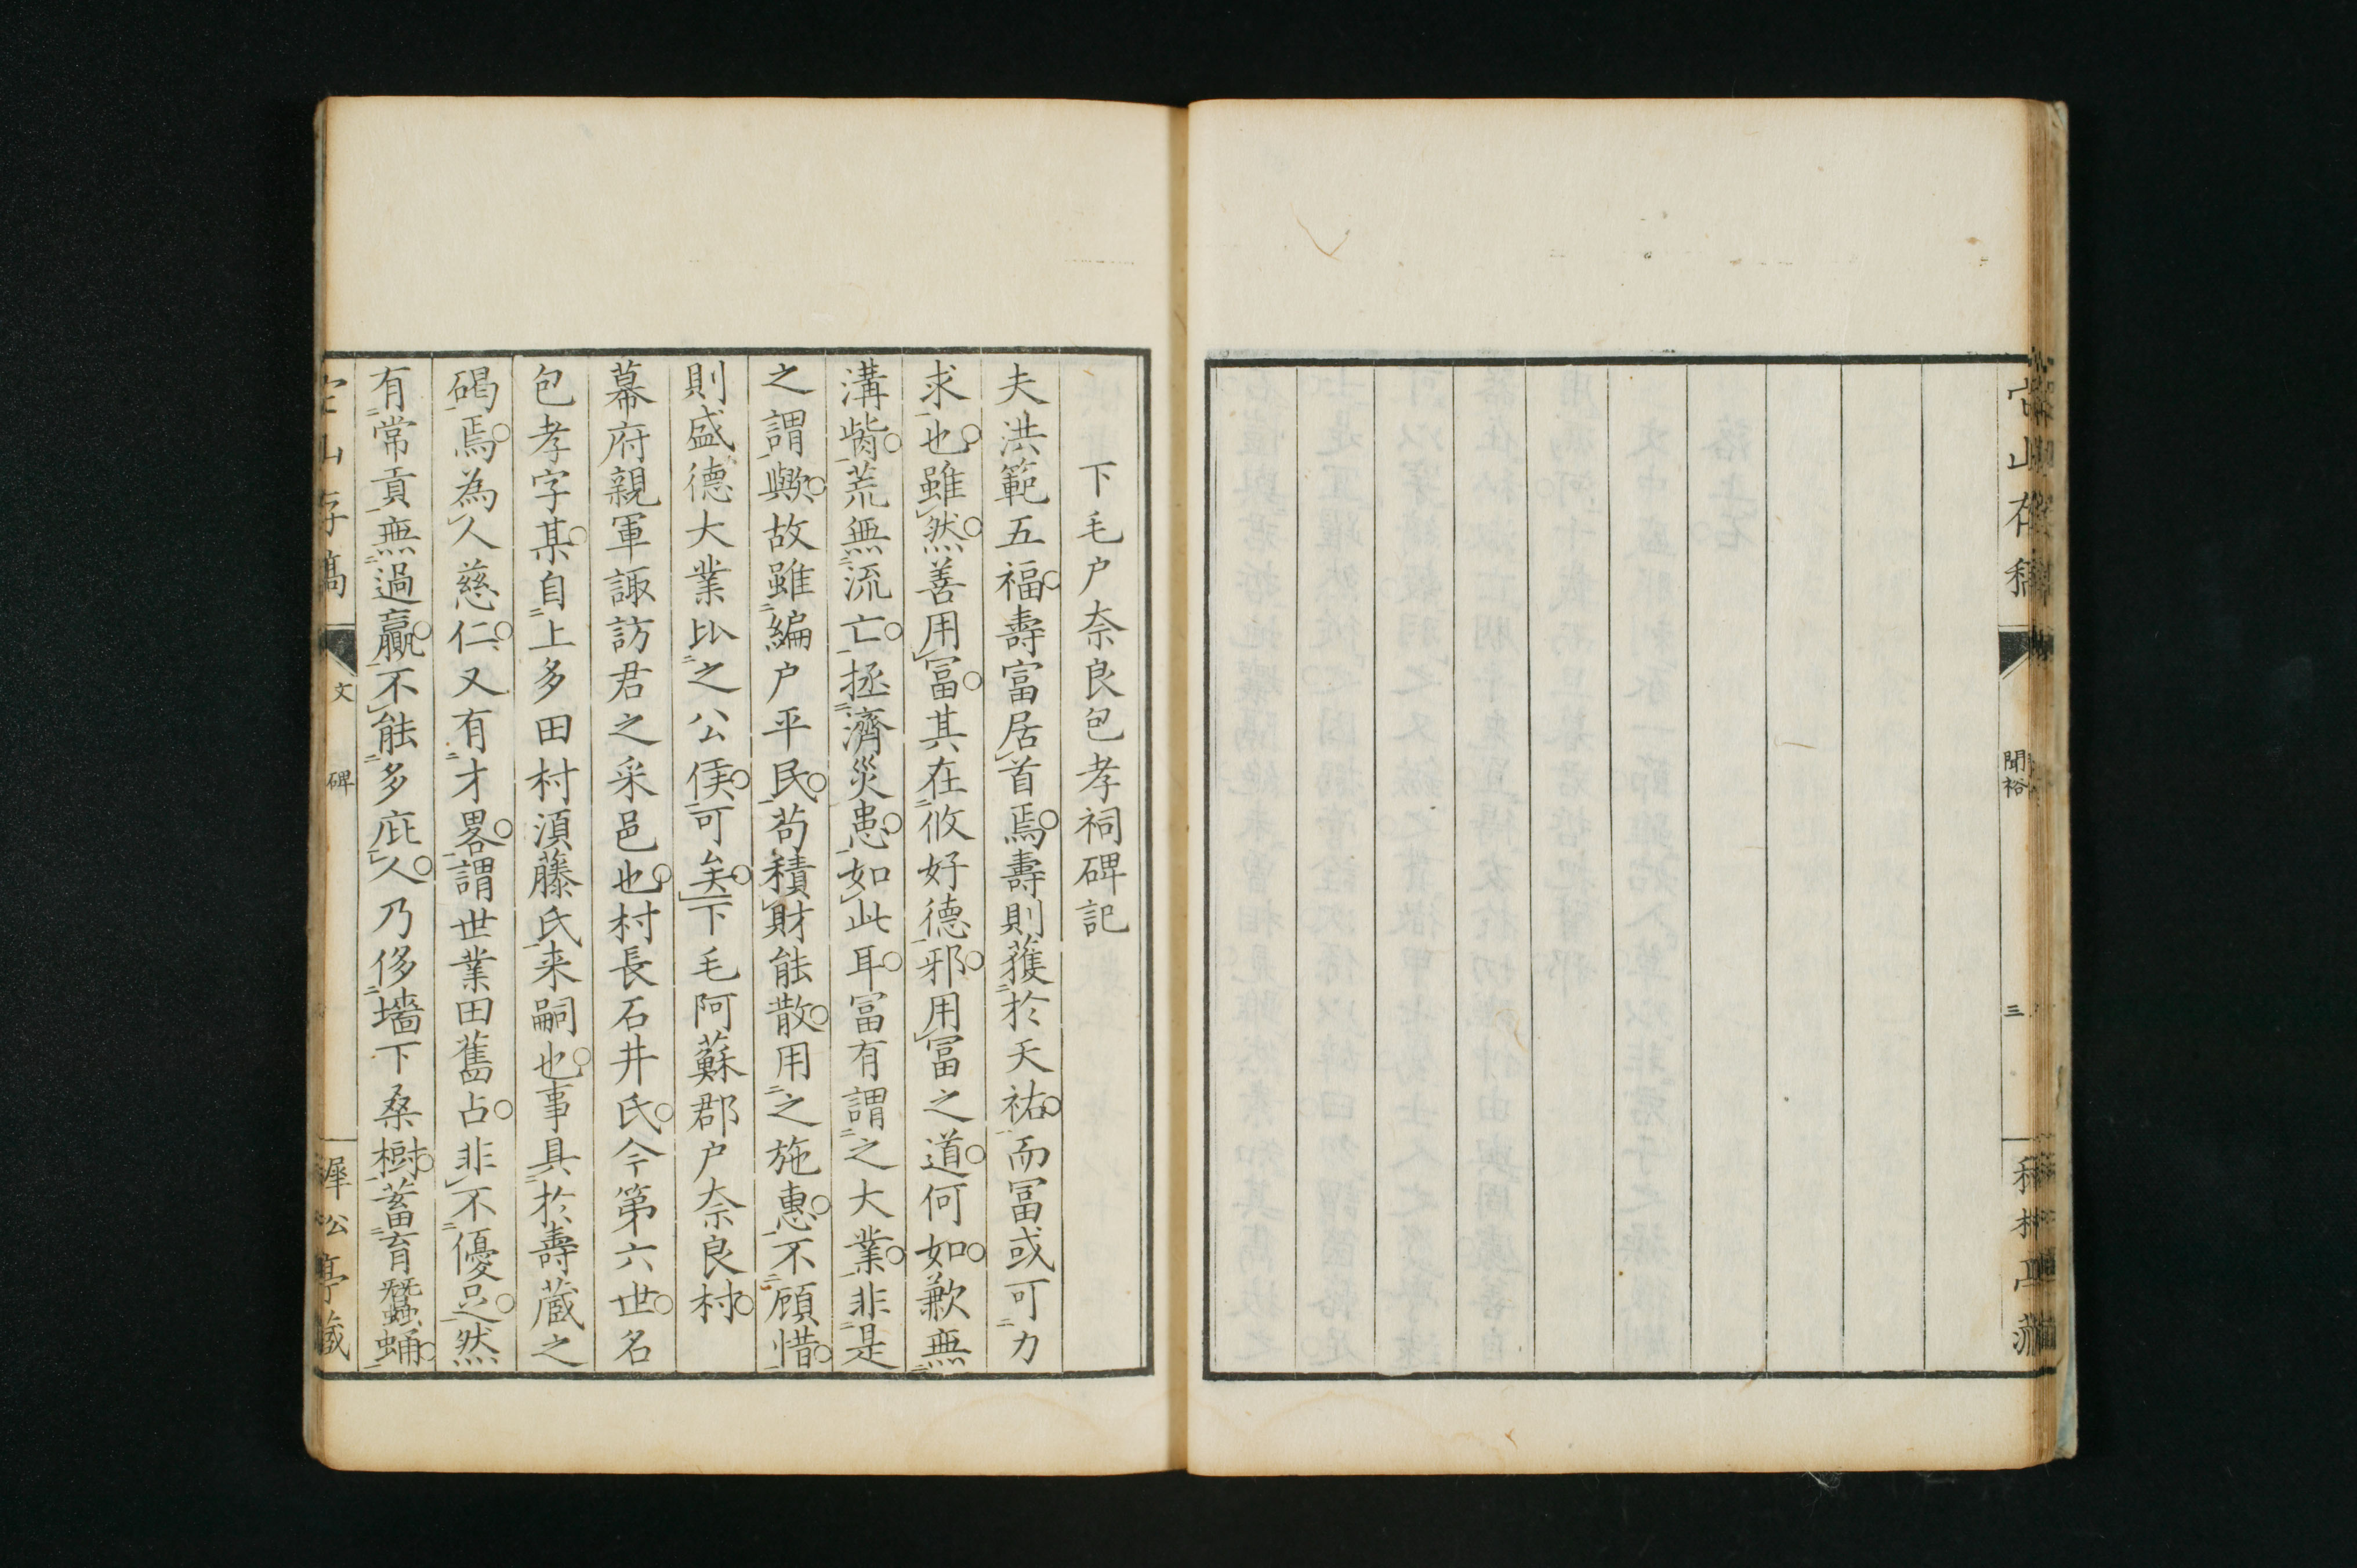 山存稿
聞裕
三
下毛户奈良包孝祠碑記
夫洪範五福。壽富居首焉。壽則獲於天祐。而冨或可力
求也。雖然。善用冨。其在攸好德邪。用冨之道。何如。歉無
溝胔。荒無流亡。拯濟災患。如此耳。冨有謂之大業。非是
之謂歟。故雖編户平民。苟積財能散。用之施惠。不顧惜。
則盛德大業比之公侯。可矣。下毛阿蘇郡户奈良村。
幕府親軍諏訪君之采邑也。村長石井氏。今第六世。名
包孝字某。自上多田村湏藤氏来嗣也。事具於壽蔵之
碣焉。為人慈仁。又有才畧。謂世業田舊占。非不優足。然
有常貢無過贏。不能多庇人。乃侈墻下桑樹。蓄育蠶蛹。
山存稿
文
碑